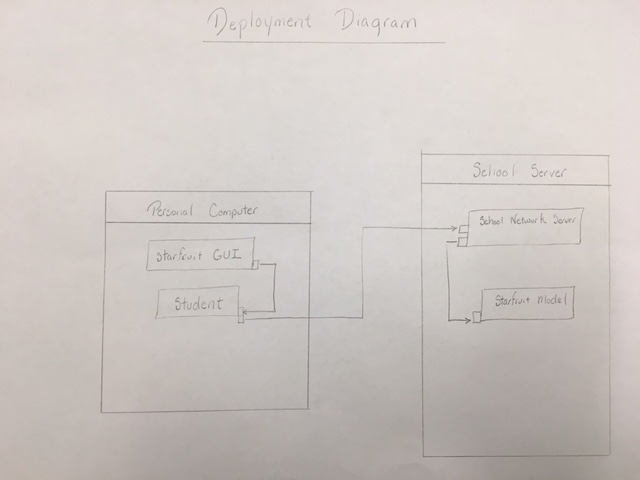 Deployment Diagram
Personal Computer
Starfruit GUI
Student
School Server
School Network Server
Starfruit Model